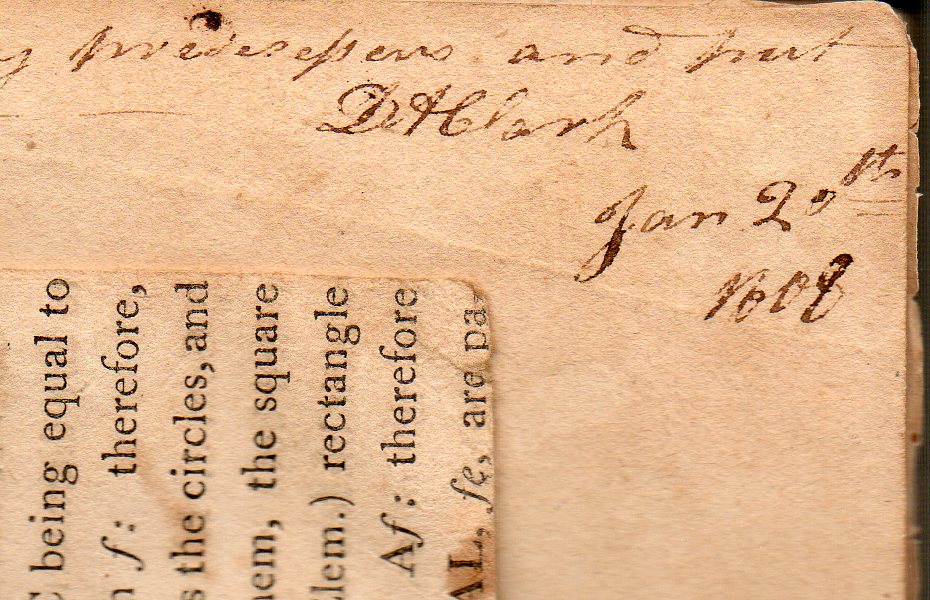 y predecessors and put
D A Clark
Jan 20th
1808
C being equal to
n f: therefore,
s the circles, and
hem, the square
Elem.) rectangle
Af: therefore
AL, fe, are pa-